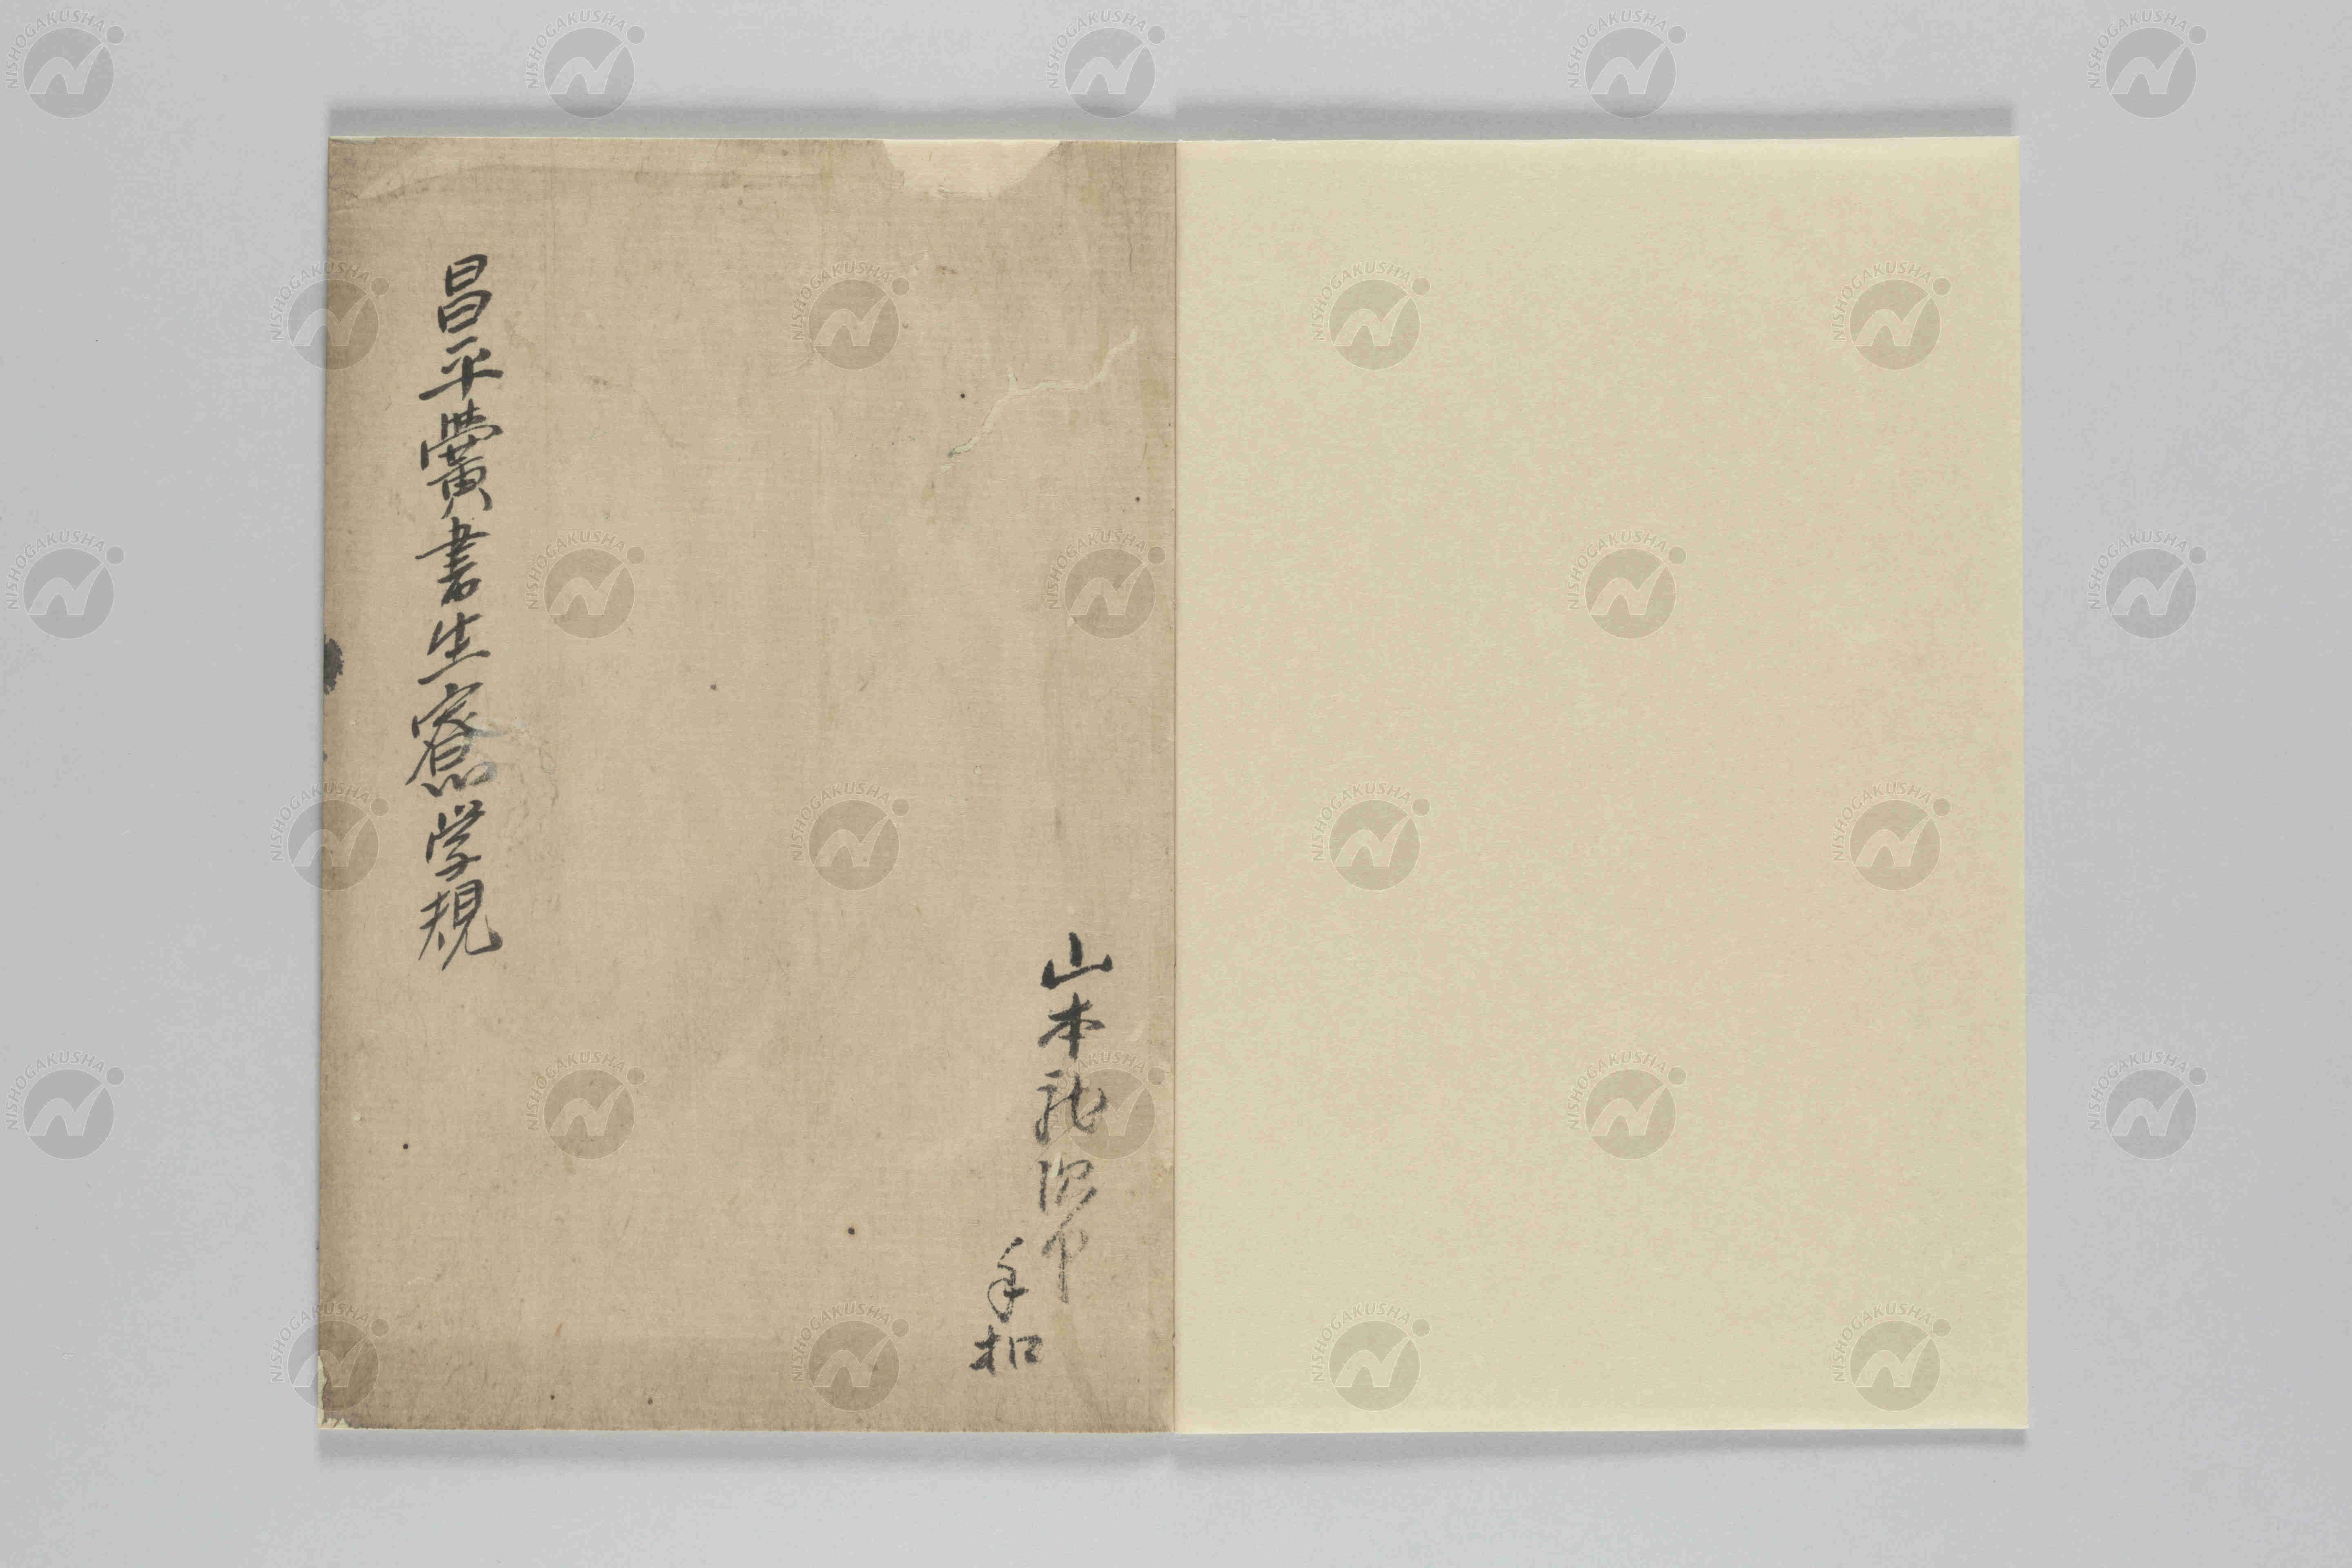 山本
手扣
昌平黌書生寮学規